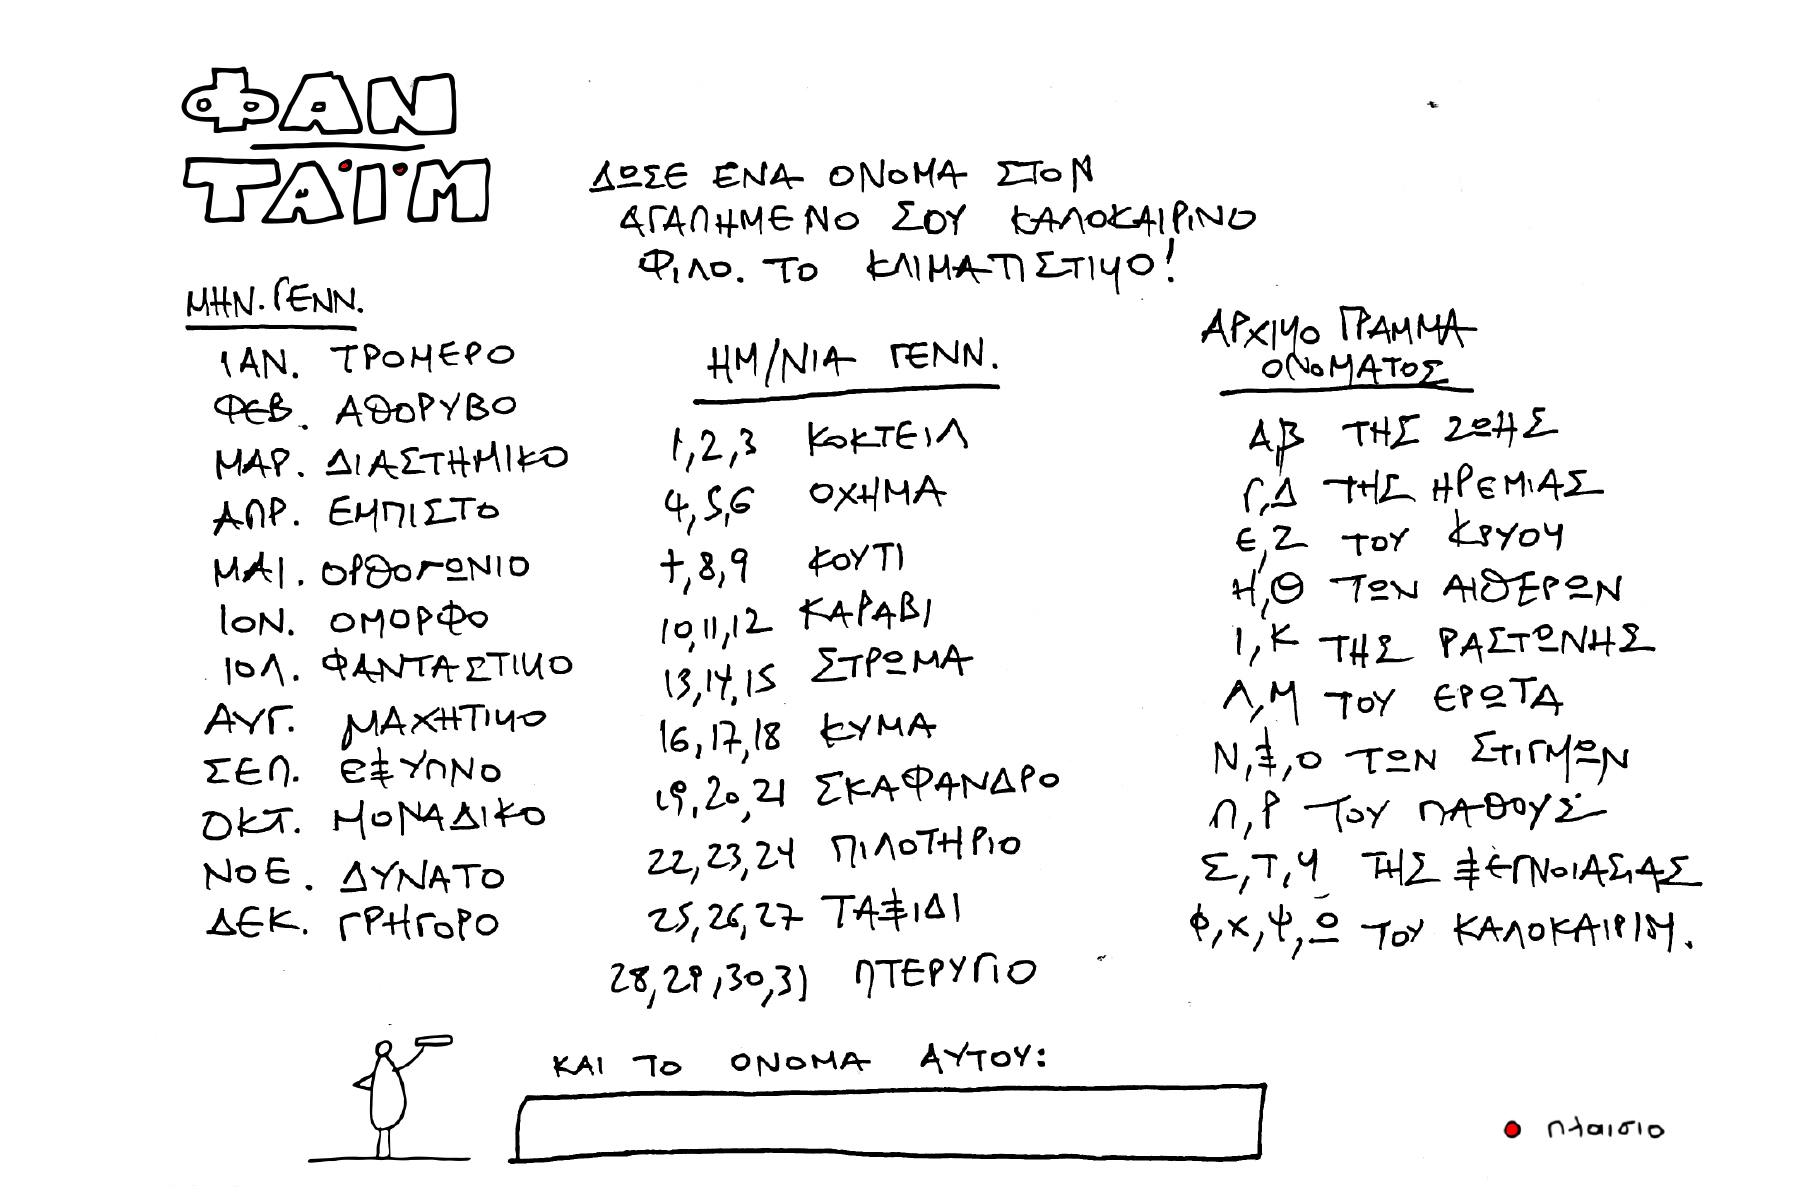 ΦΑΝ
ΤΑΪΜ
ΔΩΣΕ ΕΝΑ ΟΝΟΜΑ ΣΤΟΝ
ΑΓΑΠΗΜΕΝΟ ΣΟΥ ΚΑΛΟΚΑΙΡΙΝΟ
ΦΙΛΟ. ΤΟ ΚΛΙΜΑΤΙΣΤΙΚΟ!
ΜΗΝ. ΓΕΝΝ.
ΙΑΝ. ΤΡΟΜΕΡΟ
ΦΕΒ. ΑΘΟΡΥΒΟ
ΜΑΡ. ΔΙΑΣΤΗΜΙΚΟ
ΑΠΡ. ΕΜΠΙΣΤΟ
ΜΑΙ. ΟΡΘΟΓΩΝΙΟ
ΙΟΝ. ΟΜΟΡΦΟ
ΙΟΛ. ΦΑΝΤΑΣΤΙΚΟ
ΑΥΓ. ΜΑΧΗΤΙΚΟ
ΣΕΠ. ΕΞΥΠΝΟ
ΟΚΤ. ΜΟΝΑΔΙΚΟ
ΝΟΕ. ΔΥΝΑΤΟ
ΔΕΚ. ΓΡΗΓΟΡΟ
ΗΜ/ΝΙΑ ΓΕΝΝ.
1,2,3 ΚΟΚΤΕΙΛ
4,5,6 ΟΧΗΜΑ
7,8,9 ΚΟΥΤΙ
10,11,12 ΚΑΡΑΒΙ
13,14,15 ΣΤΡΩΜΑ
16,17,18 ΚΥΜΑ
19,20,21 ΣΚΑΦΑΝΔΡΟ
22,23,24 ΠΙΛΟΤΗΡΙΟ
25,26,27 ΤΑΞΙΔΙ
28,29,30,31 ΠΤΕΡΥΓΙΟ
ΑΡΧΙΚΟ ΓΡΑΜΜΑ
ΟΝΟΜΑΤΟΣ
Α,Β ΤΗΣ ΖΩΗΣ
Γ,Δ ΤΗΣ ΗΡΕΜΙΑΣ
Ε,Ζ ΤΟΥ ΚΡΥΟΥ
Η,Θ ΤΩΝ ΑΙΘΕΡΩΝ
Ι,Κ ΤΗΣ ΡΑΣΤΩΝΗΣ
Λ,Μ ΤΟΥ ΕΡΩΤΑ
Ν,Ξ,Ο ΤΩΝ ΣΤΙΓΜΩΝ
Π,Ρ ΤΟΥ ΠΑΘΟΥΣ
Σ,Τ,Υ ΤΗΣ ΞΕΓΝΟΙΑΣΙΑΣ
Φ,Χ,Ψ,Ω ΤΟΥ ΚΑΛΟΚΑΙΡΙΜ.
ΚΑΙ ΤΟ ΟΝΟΜΑ ΑΥΤΟΥ:
πλαισιο